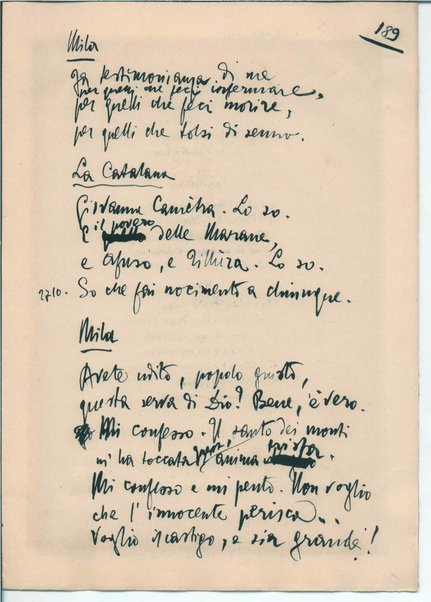 189
Mila
Fa testimonianza di me
per quelli che feci infermare,
per quelli che feci morire,
per quelli che tolsi di senno.
La Catalana
Giovanna Camètra. Lo so.
E il povero delle Marane,
e Afuso, e Tillura. Lo so.
1710. So che fai nocimento a chiunque.
Mila
Avete udito, popolo giusto,
questa serva di Dio? Bene, è vero.
Mi confesso. Il santo dei monti
m'ha toccata anima trista.
Mi confesso e mi pento. Non voglio
che l'innocente perisca...
Voglio il castigo, e sia grande!